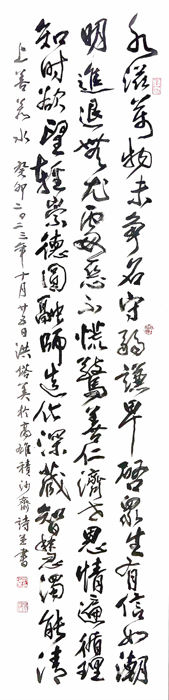 水滋萬物未爭名守弱謙卑啓眾生有信如潮
明進退無尤雨露慈不慌驚善仁濟世恩情遍循理
知時欲望輕崇德圓融師造化深藏智慧濁能清
上善若水 癸卯二0二三年十月廿五日洪塔美於高雄積沙齋詩並書